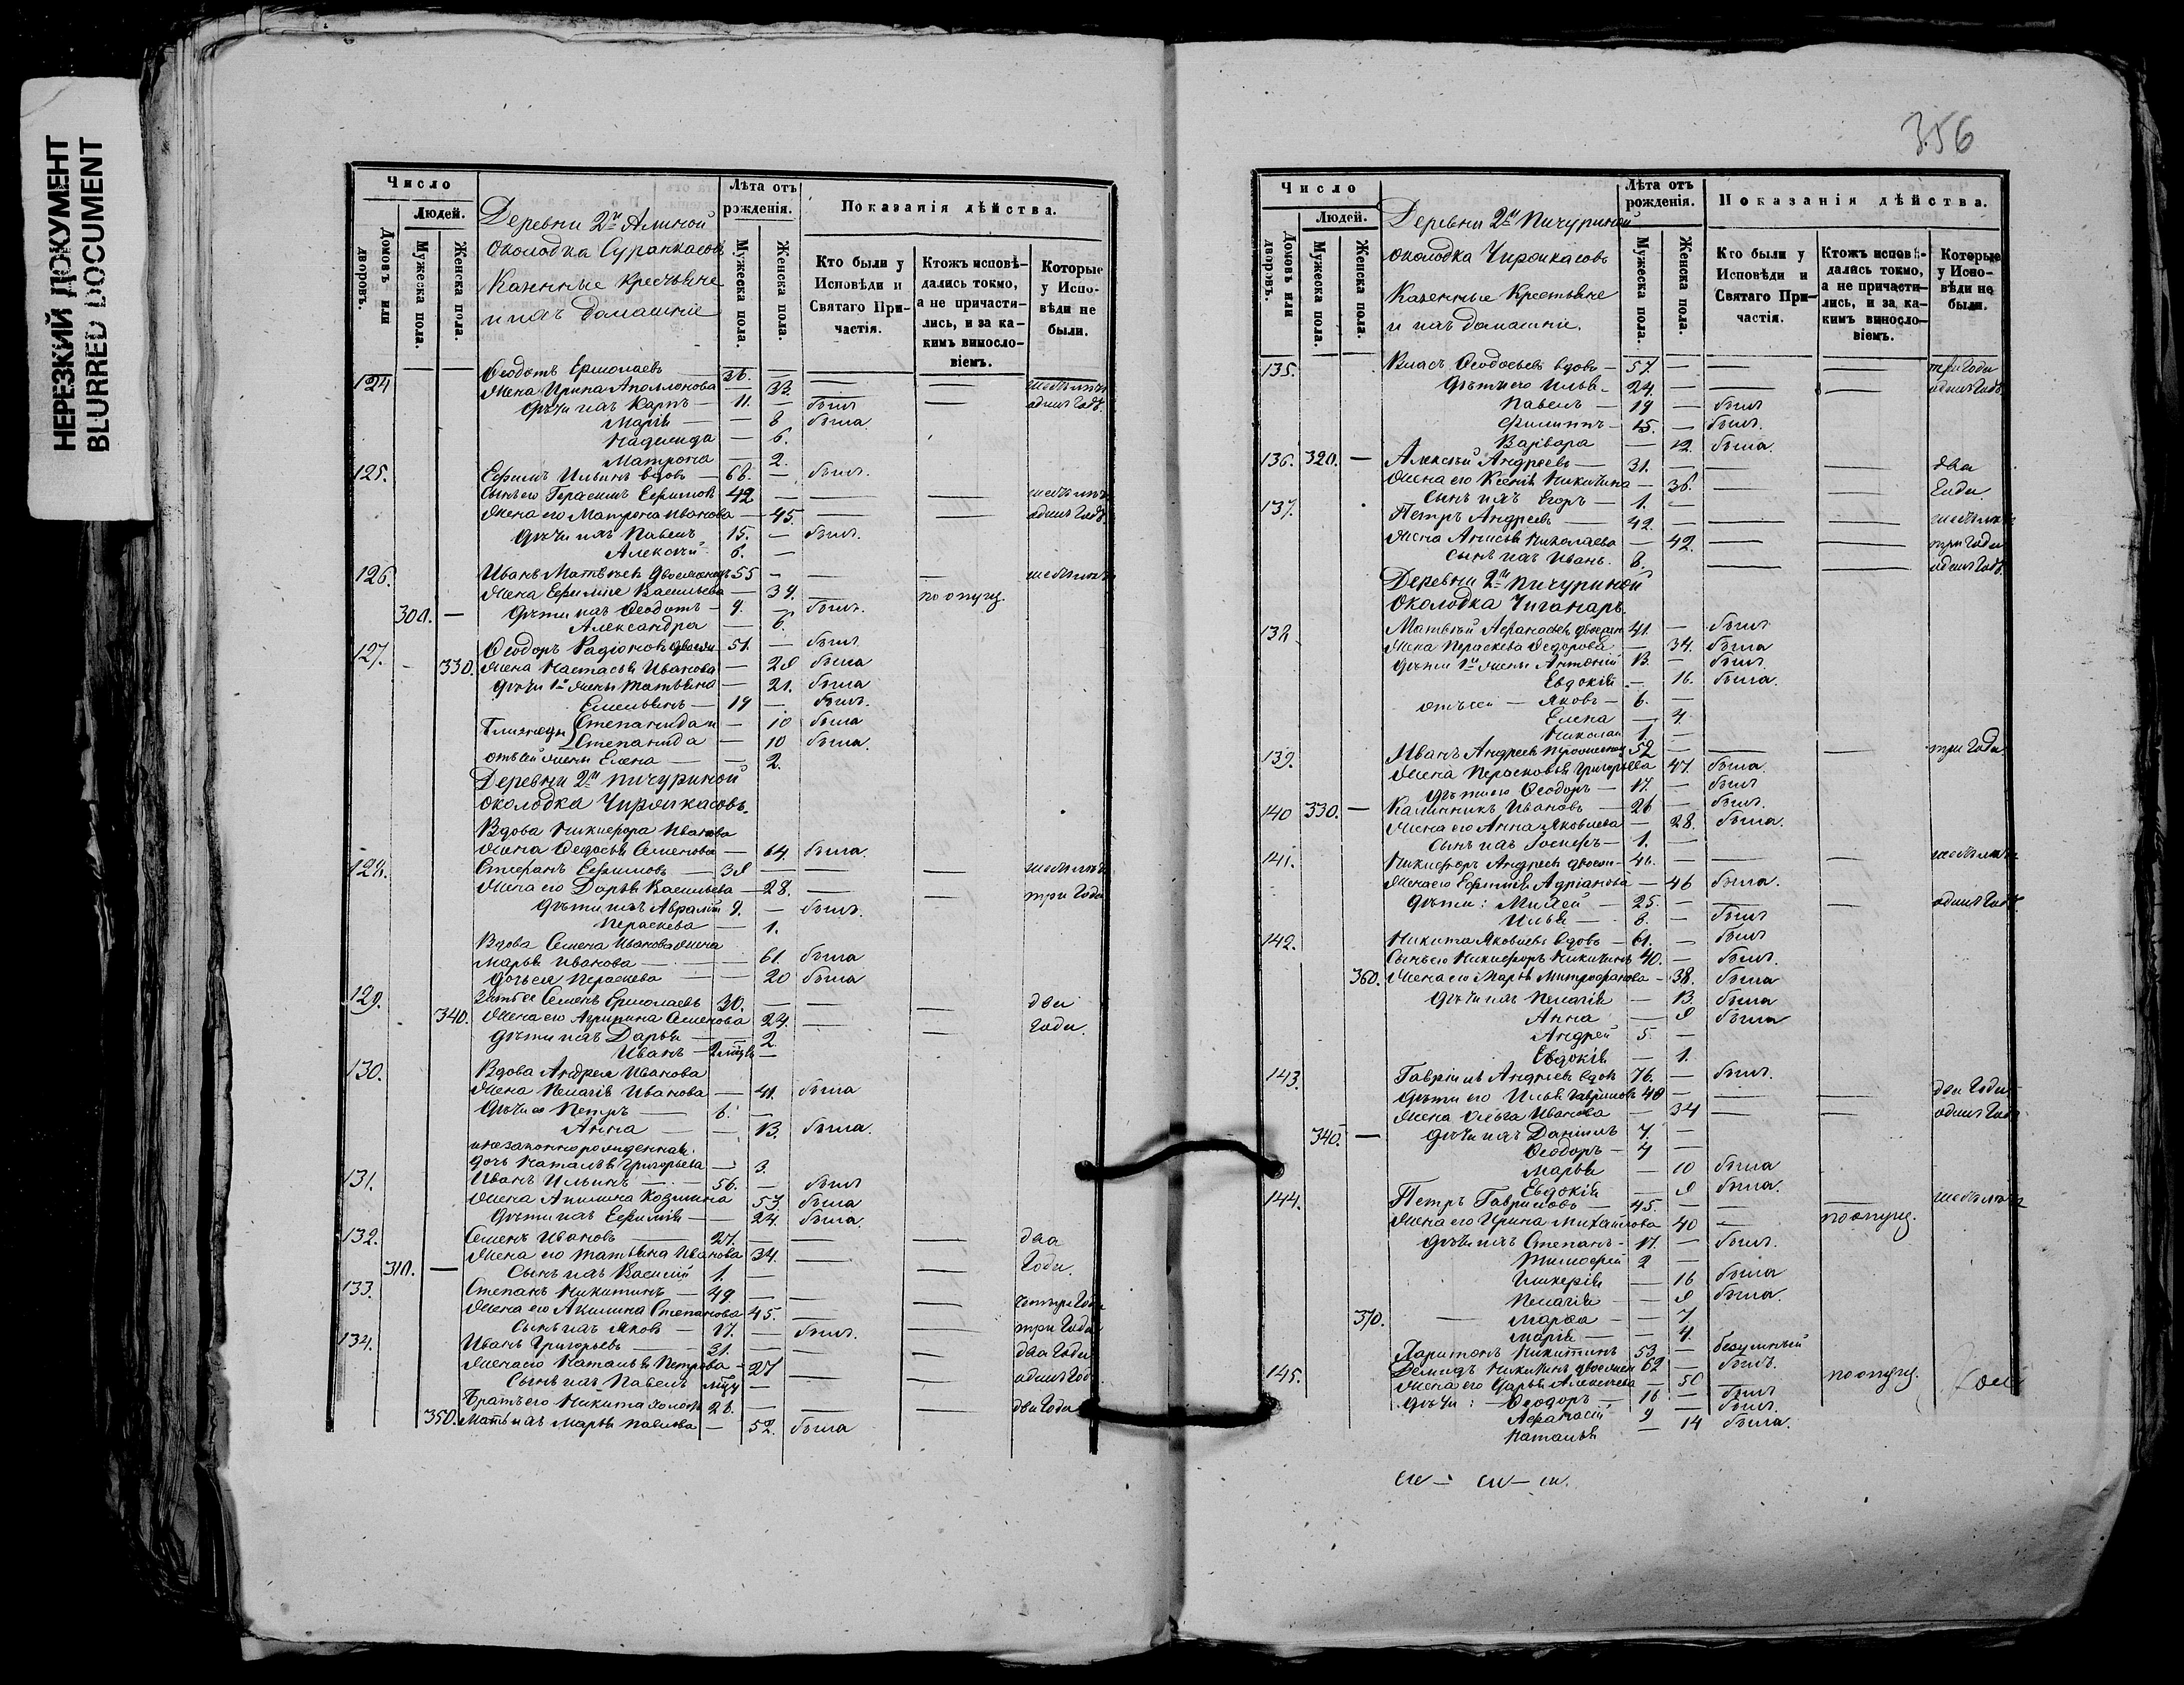 НЕРЕЗКИЙ ДОКУМЕНТ
BLURRED DOCUMENT
Число
Людей.
Домовъ или дворовъ.
Мужеска пола.
Женска пола.
Деревни 2й
околодка
Казенные Крестьяне
и ихъ домашніе
Лѣта отъ рожденія.
Мужеска пола.
Женска пола.
Показанія дѣйства.
Кто были у Исповѣди и Святаго Причастія.
Ктожъ исповѣдались токмо, а не причастились, и за какимъ винословіемъ.
Которые у Исповѣди не были.
124 Ѳеодотъ Ермолаевъ 36. —
Жена Ирина Аполлонова — 33. — —
дѣти ихъ Карпъ — 11. — былъ — одинъ годъ
Марія — — 8 была
Надежда — 6.
Матрона — 2.
125. Ефимъ Ильинъ вдовъ — 68. — былъ.
Сынъ его Герасимъ Ефимовъ 42 — — —
Жена его Матрона Иванова — 45. — — одинъ годъ
дѣти ихъ Павелъ 15. — былъ.
Алексѣй 6. —
126. Иванъ Матвѣевъ двоеженецъ 55 — — —
Жена Ефимія Васильева — 39. — по опущ.
300. — дѣти ихъ Ѳеодотъ — 9. — былъ.
Александра — 6.
127. Ѳеодоръ Радіоновъ 51. — былъ
330. Жена Настасья Иванова — 28 была
дѣти 1й жены Татьяна — 21. была
Емельянъ — 19 — былъ.
Близнецы Степанида — 10 была
Степанида — 10 была.
отъ сей жены Елена — — 2.
Деревни 2й Пичуриной
околодка Чиршкасовъ.
Вдова Никифора Иванова
жена Ѳедосья Семенова — 64. была.
128. Стефанъ Ефимовъ — 38 — — —
Жена его Дарья Васильева — 28. — — три года
дѣти ихъ Аврамій 9. — былъ.
Пераскева — 1.
Вдова Семена Иванова жена
Марья Иванова — — 61. была
дочь ея Пераскева — — 20 была
129. Зять ея Семенъ Ермолаевъ 30. — — — два
340. Жена его Агрипина Семенова 24. — — года.
дѣти ихъ Дарья — — 2.
Иванъ —
130. Вдова Андрея Иванова
жена Пелагія Иванова — 41. была
дѣти ея Петръ — 6. —
Анна — — 13. была.
незаконнорожденная
дочь Наталья Григорьева — 3.
131. Иванъ Ильинъ — 56. — былъ
Жена Акилина Козмина 53. была
дѣти ихъ Ефимія — 24. была.
132. Семенъ Ивановъ — 27. — — — два
Жена его Татьяна Иванова 34. — — года.
310. — Сынъ ихъ Василій 1. —
133. Степанъ Никитинъ — 49. — — — четыре года
Жена его Акилина Степанова 45. — — три года
Сынъ ихъ Яковъ — 17. — былъ.
134. Иванъ Григорьевъ — 31. — — — два года
Жена его Наталья Петрова — 27 — — одинъ год
Сынъ ихъ Павелъ —
Братъ его Никита 28. — — — два года
350. Мать ихъ Марья Павлова — 52. была
356
Число
Людей.
Домовъ или дворовъ.
Мужеска пола.
Женска пола.
Деревни 2й Пичуриной
околодка Чиршкасовъ
Казенные Крестьяне
и ихъ домашніе.
Лѣта отъ рожденія.
Мужеска пола.
Женска пола.
Показанія дѣйства.
Кто были у Исповѣди и Святаго Причастія.
Ктожъ исповѣдались токмо, а не причастились, и за какимъ винословіемъ.
Которые у Исповѣди не были.
135. Власъ Ѳеодосьевъ вдовъ — 57. — — — три года
дѣти его Илья — 24. — — — одинъ годъ.
Павелъ — 19 — былъ
Филиппъ — 15. — былъ.
Варвара — 12. была.
136. 320. — Алексѣй Андреевъ — 31. — — — два
Жена его Ксенія Никитина — 36. — — года
Сынъ ихъ Егоръ — 1. —
137. Петръ Андреевъ — 42. — — —
Жена Анисья Николаева — 42. — — три года
сынъ ихъ Иванъ. 8. — — одинъ годъ.
Деревни 2й Пичуриной
околодка Чиганаръ.
138 Матвѣй Афанасьевъ 41. — былъ
Жена Пераскева Ѳедорова — 34. была
дѣти 1й жены Антоній 13. — былъ.
Евдокія — 16. была.
отъ сей — Яковъ — 6. —
Елена — 4.
Николай 1. —
139. Иванъ Андреевъ 52 — — — три года
Жена Перасковья Григорьева 47. была.
дѣти его Ѳеодоръ — 17. — былъ
140 330. — Калинникъ Ивановъ — 26 — былъ.
Жена его Анна Яковлева — 28. была.
Сынъ ихъ Іосифъ — 1. —
141. Никифоръ Андреевъ 46. — — —
Жена его Ефимія Адріанова — 46 была.
дѣти: Михей — 25. — — — одинъ годъ.
Илья — 8. — былъ
142. Никита Яковлевъ вдовъ — 61. — былъ
Сынъ его Никифоръ Никитинъ 40. — былъ.
360. Жена его Марья Митрофанова — 38. была
дѣти ихъ Пелагія — 13. была
Анна — 8 была
Андрей 5. —
Евдокія — 1.
143. Гавріилъ Андреевъ вдовъ 76. — былъ.
дѣти его Илья Гавриловъ 40 — — — два года
Жена Ольга Иванова — 34 — — одинъ годъ
340. — дѣти ихъ Даніилъ 7. —
Ѳеодоръ — 4 —
Марья — 10 была
Евдокія — 8 была.
144. Петръ Гавриловъ — 45. — — —
Жена его Ирина Михайлова 40 — по опущ.
дѣти ихъ Степанъ — 17. — былъ.
Тимофей 2 —
Гликерія — 16 была
Пелагія — 8 была.
370. — Марѳа — — 7
Марія — — 4.
Харитонъ Никитинъ 53 — безумный
145. Демидъ Никитинъ 62 — былъ.
Жена его Дарья Алексѣева — 50 — по опущ.
дѣти: — Ѳеодоръ — 16 — былъ
Афанасій 9 — былъ.
Наталья — 14 была.